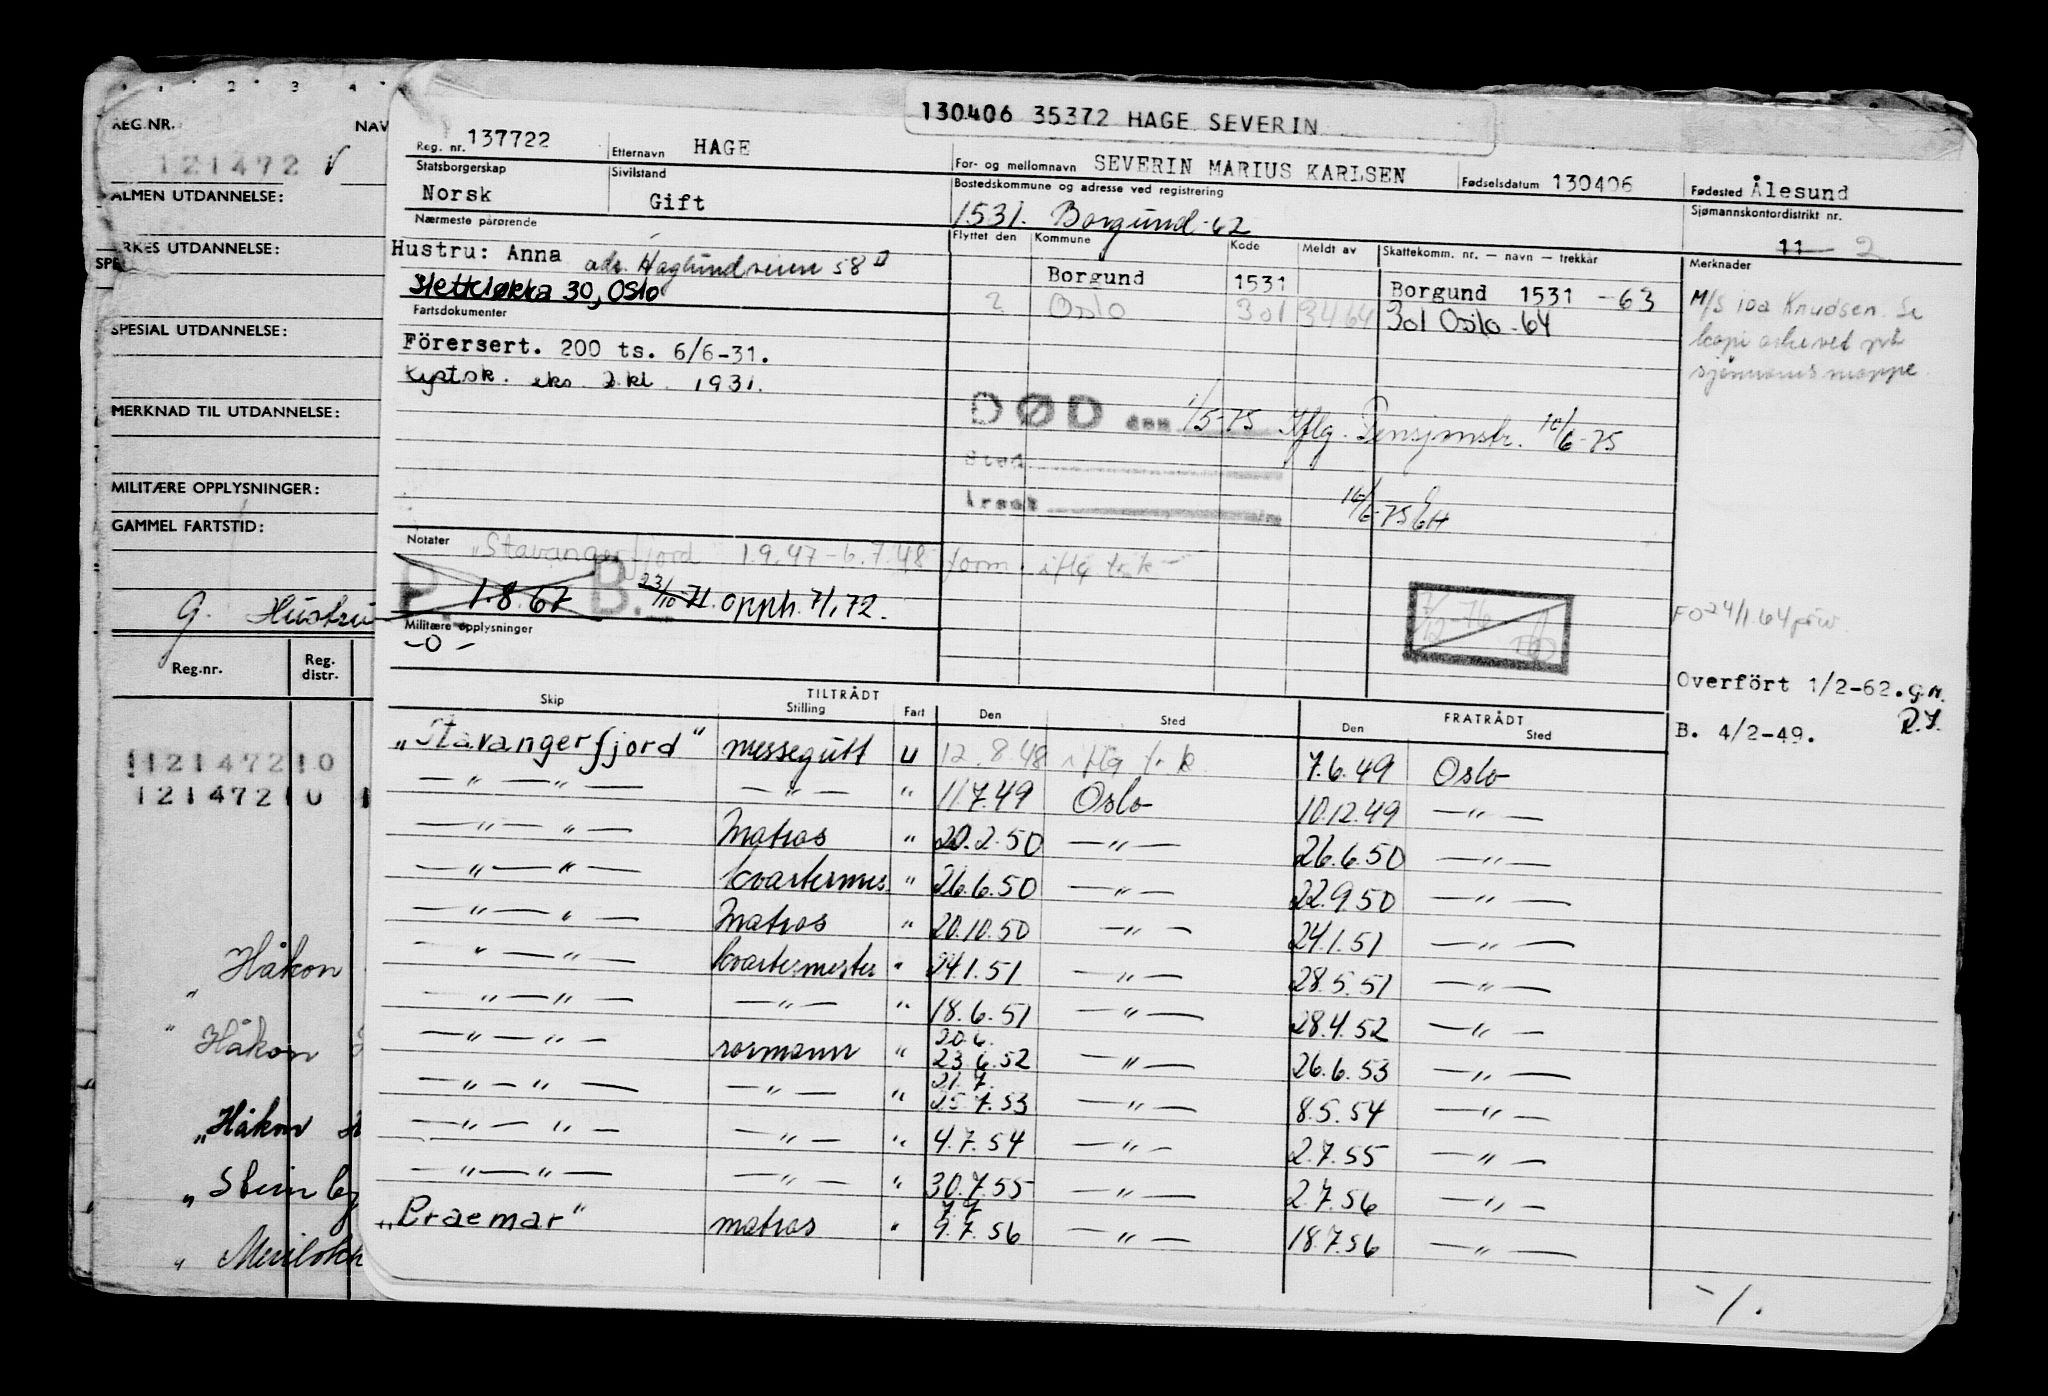 130406 35372 HAGE SEVERIN
Reg. nr. 137722 Etternavn HAGE For- og mellomnavn SEVERIN MARIUS KARLSEN Fødselsdatum 130406 Fødested Ålesund
Statsborgerskap Norsk Sivilstand Gift Bostedskommune og adresse ved registrering 1531. Borgund-62 Sjømannskontordistrikt nr. 11 2
Nærmeste pårørende Flyttet den Kommune Kode Meldt av Skattekomm. nr. — navn — trekkår Merknader
Hustru: Anna adr. Haglundveien 58 D Borgund 1531 Borgund 1531 -63
Sletteløkka 30, Oslo 2 Oslo 301 3464 301 Oslo - 64
M/S Ida Knudsen. Se
kopi arkivert på
sjømanns mappe.
Fartsdokumenter
Förersert. 200 ts. 6/6-31.
Kystsk. eks. 2. kl. 1931.
DØD den 1/5-75 Iflg. Pensjonstr. 10/6-75
Sted
Årsak
16/6-75 EH
Notater "Stavangerfjord 1.9.47 - 6.7.48 iflg t.k
P. 1.8.67 B. 23/10 71. opph. 7/1.72.
Militære opplysninger
-0-
7/12-76
FO 24/1.64
Overfört 1/2-62. G.N.
R.J.
B. 4/2-49.
TILTRÅDT FRATRÅDT
Skip Stilling Fart Den Sted Den Sted
"Stavangerfjord" messegutt U 12.8.48 iflg t.k. 7.6.49 Oslo
— " — " — — " — " 11.7.49 Oslo 10.12.49 — " —
— " — " — Matros " 20.2.50 — " — 26.6.50 — " —
— " — " — kvartermes " 26.6.50 — " — 22.9.50 — " —
— " — " — Matros " 20.10.50 — " — 24.1.51 — " —
— " — " — kvartermester " 24.1.51 — " — 28.5.51 — " —
— " — " — — " — " 18.6.51 — " — 28.4.52 — " —
20.6.
— " — " — rormann " 23.6.52 — " — 26.6.53 — " —
21.7.
— " — " — — " — " 25.7.53 — " — 8.5.54 — " —
— " — " — — " — " 4.7.54 — " — 2.7.55 — " —
— " — " — — " — " 30.7.55 — " — 2.7.56 — " —
7.7
"Braemar" matros " 9.7.56 — " — 18.7.56 — " —
-/.
1 2 3 4
REG.NR. NAV
121472 V
ALMEN UTDANNELSE:
YRKES UTDANNELSE:
SPE
SPESIAL UTDANNELSE:
MERKNAD TIL UTDANNELSE:
MILITÆRE OPPLYSNINGER:
GAMMEL FARTSTID:
G. Hustru
Reg.nr. Reg. distr.
121472 0
121472 0
"Håkon
"Håkon
"Håkon